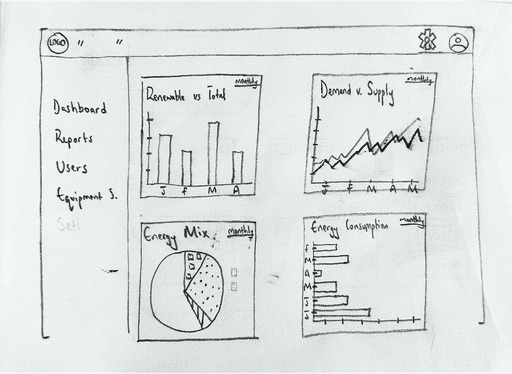 LOGO " "
Dashboard
Reports
Users
Equipment S.
Renewable vs Total
monthly
J F M A
Demand v. Supply
monthly
J F M A M
Energy Mix
monthly
Energy Consumption
monthly
F
M
A
M
J
J